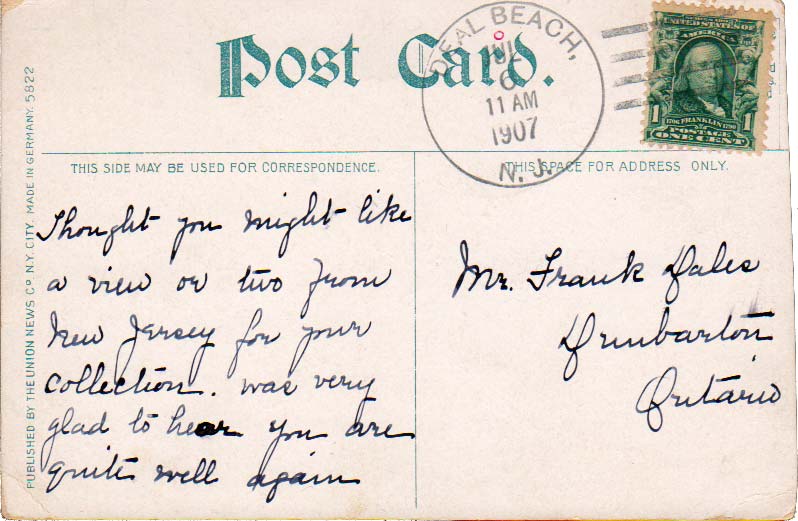 Post Card.
DEAL BEACH,
JUL
6
11 AM
1907
N. J.
UNITED STATES OF
AMERICA
1 1706 FRANKLIN 1790 1
POSTAGE
ONE CENT
THIS SIDE MAY BE USED FOR CORRESPONDENCE.
THIS SPACE FOR ADDRESS ONLY.
Thought you might like
a view or two from
New Jersey for your
collection. was very
glad to hear you are
quite well again
Mr. Frank Dales
Dunbarton
Ontario
PUBLISHED BY THE UNION NEWS CO. N.Y. CITY. MADE IN GERMANY. 5822